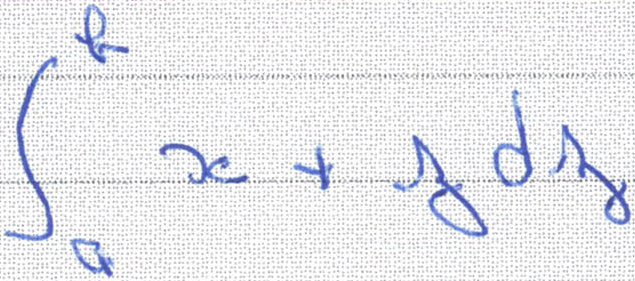 \int_{a}^{b} x + y dy